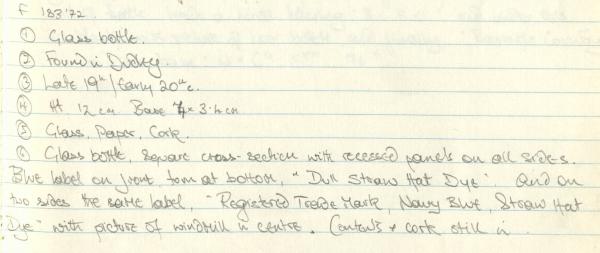 F 183'72
① Glass bottle.
② Found in Dudley
③ Late 19th / Early 20th c.
④ Ht 12 cm Base 4 × 3.4 cm
⑤ Glass, Paper, Cork.
⑥ Glass bottle, square cross-section with recessed panels on all sides.
Blue label on front, torn at bottom, "Dull Straw Hat Dye". And on
two sides the same label, "Registered Trade Mark, Navy Blue, Straw Hat
Dye" with picture of windmill in centre. Contents & cork still in